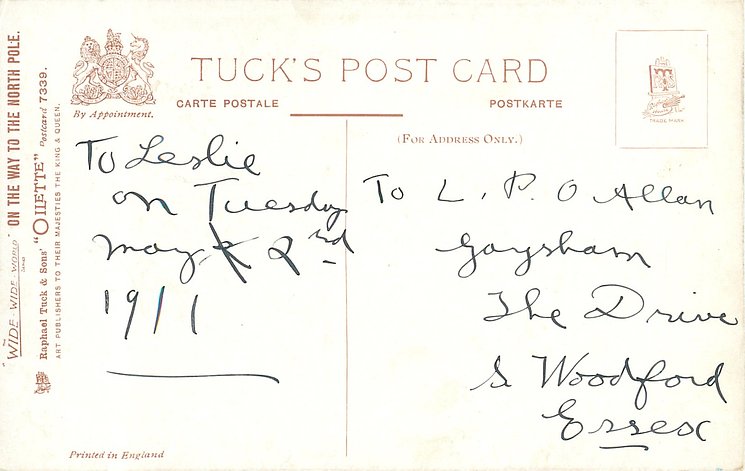 TUCK'S POST CARD
By Appointment.
CARTE POSTALE
POSTKARTE
(FOR ADDRESS ONLY.)
TRADE MARK
To Leslie
on Tuesday
May 2nd
1911
To L. P. O Allan
Gaysham
The Drive
S Woodford
Essex
Printed in England
"THE WIDE-WIDE-WORLD" SERIES ON THE WAY TO THE NORTH POLE.
Raphael Tuck & Sons' "OILETTE" Postcard 7339.
ART PUBLISHERS TO THEIR MAJESTIES THE KING & QUEEN.